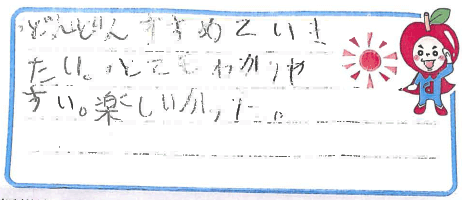 どんどんすすめていき
たい。とてもわかりや
すい。楽しいかった。